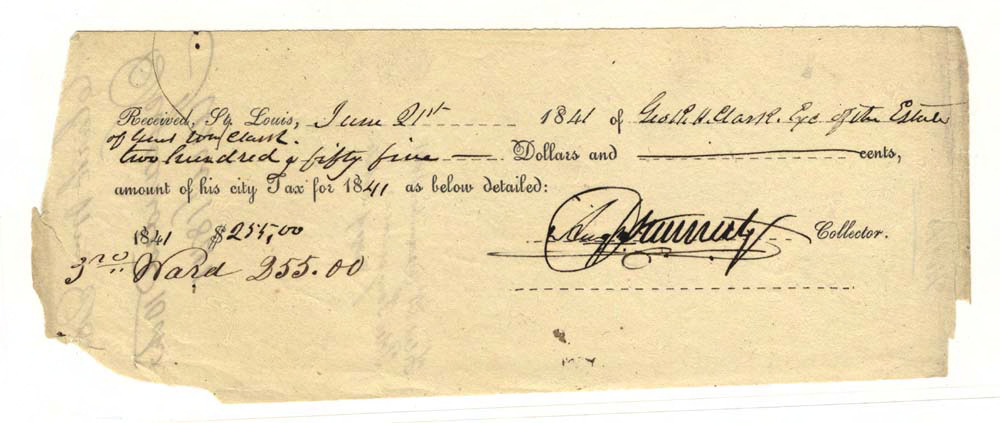 Received, St. Louis, June 21st 1841 of Geo R. H. Clark. Exc. of the Estate
of Genl Wm Clark.
two hundred & fifty five — Dollars and — cents,
amount of his city Tax for 1841 as below detailed:
1841 $255,00
Collector.
3rd Ward 255.00